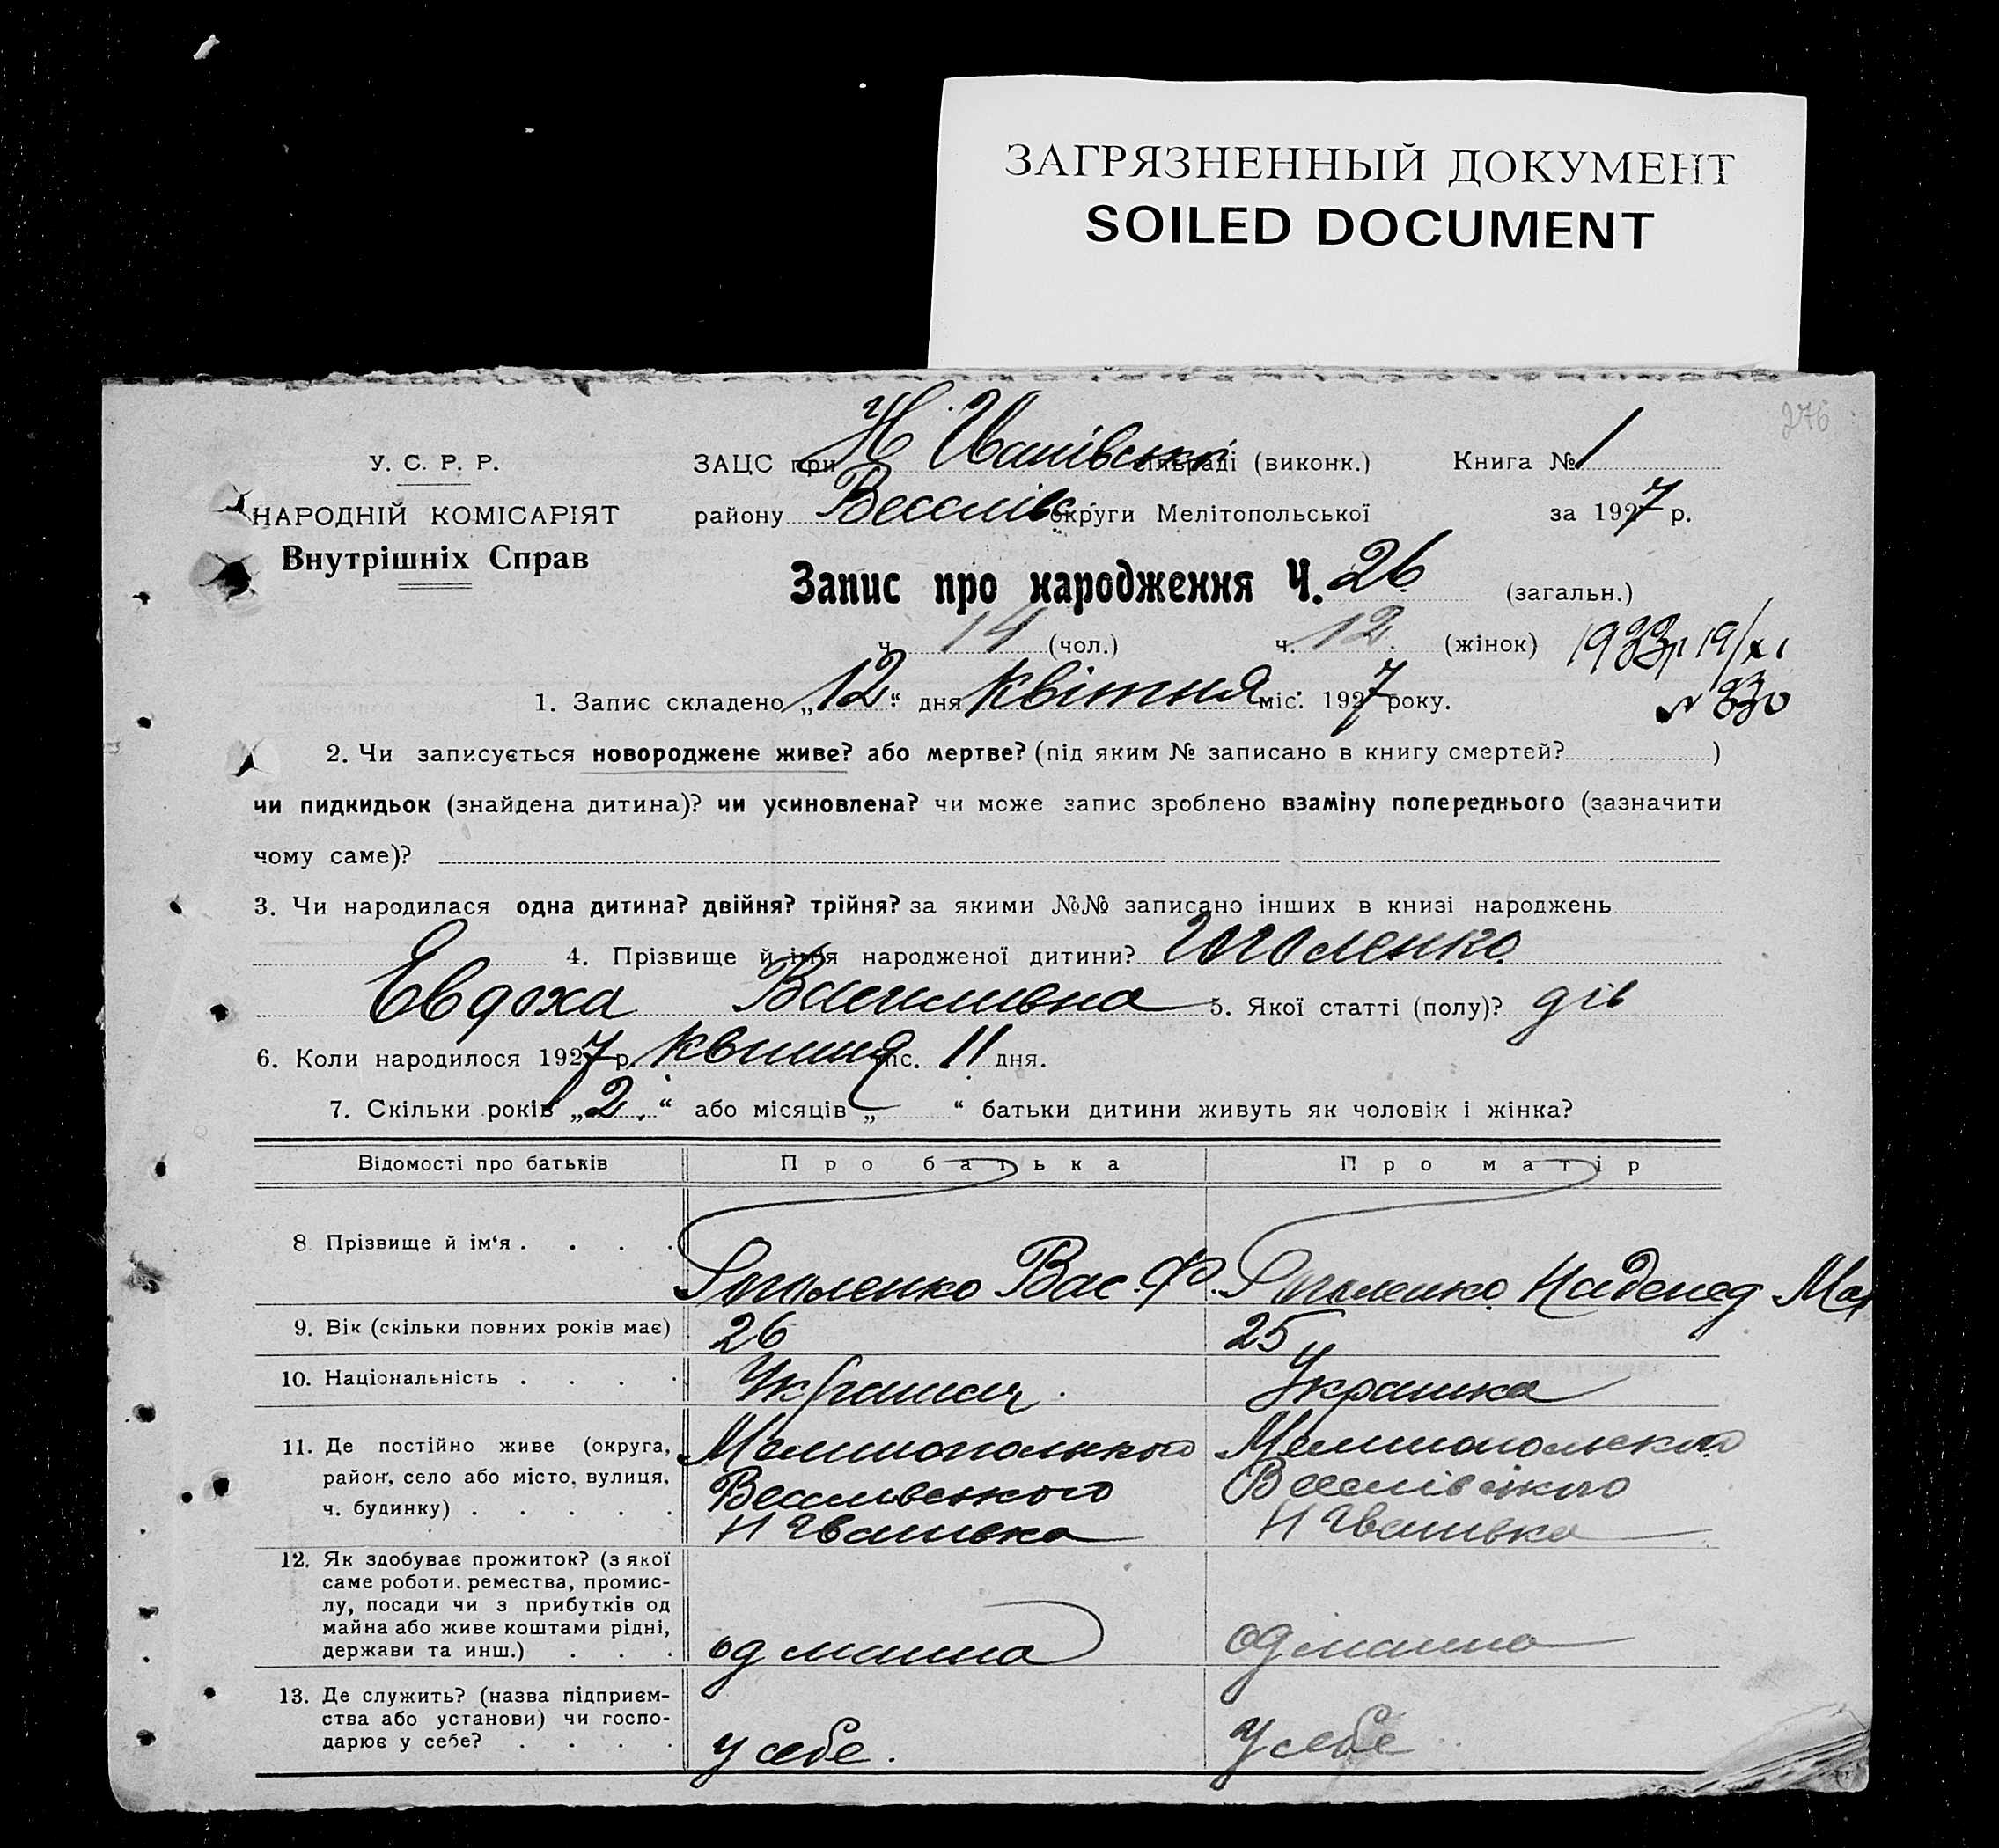 ЗАГРЯЗНЕННЫЙ ДОКУМЕНТ
SOILED DOCUMENT
276
У. С. Р. Р.
НАРОДНІЙ КОМІСАРІЯТ
Внутрішніх Справ
ЗАЦС при Н Іванівськ сільраді (виконк.) Книга № 1
району Веселівс округи Мелітопольської за 1927 р.
Запис про народження Ч. 26 (загальн.)
ч. 14 (чол.) ч. 12 (жінок) 1933 19/XI
1. Запис складено „12“ дня квітня міс. 1927 року. № 330
2. Чи записується новороджене живе? або мертве? (під яким № записано в книгу смертей? )
чи пидкидьок (знайдена дитина)? чи усиновлена? чи може запис зроблено взаміну попереднього (зазначити
чому саме)?
3. Чи народилася одна дитина? двійня? трійня? за якими №№ записано інших в книзі народжень
4. Прізвище й імя народженої дитини?
Евдоха Василивна 5. Якої статті (полу)? дів
6. Коли народилося 1927 р. квитня міс. 11 дня.
7. Скільки років „2“ або місяців „ “ батьки дитини живуть як чоловік і жінка?
Відомості про батьків Про батька Про матір
8 Прізвище й ім‘я . . . . Вас. Ф.
9. Вік (скільки повних років має) 26 25
10. Національність . . . . Украинец Украинка
11. Де постійно живе (округа, Мелитопольского Мелитопольского
район, село або місто, вулиця, Веселивського Веселівского
ч. будинку) . . . . . Н Іванивка Н Іванивка
12. Як здобуває прожиток? (з якої
саме роботи, ремества, промис-
лу, посади чи з прибутків од
майна або живе коштами рідні,
держави та инш.) . . . од маина од маина
13. Де служить? (назва підприєм-
ства або установи) чи госпо-
дарює у себе? . . . . у себе. у себе